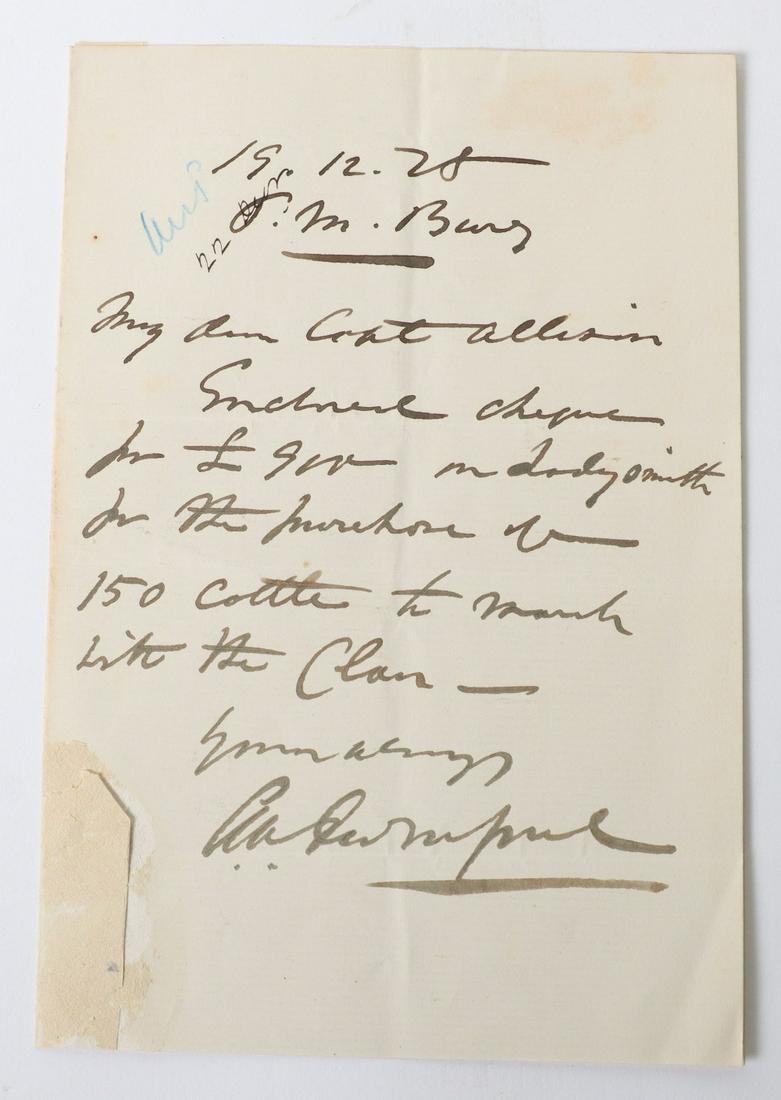 19.12.78
P.M. Burg
22
My dear Capt Allison
Enclosed cheque
for £900 on Ladysmith
for the purchase of
150 cattle to march
with the Clan —
yours always
AW Durnford